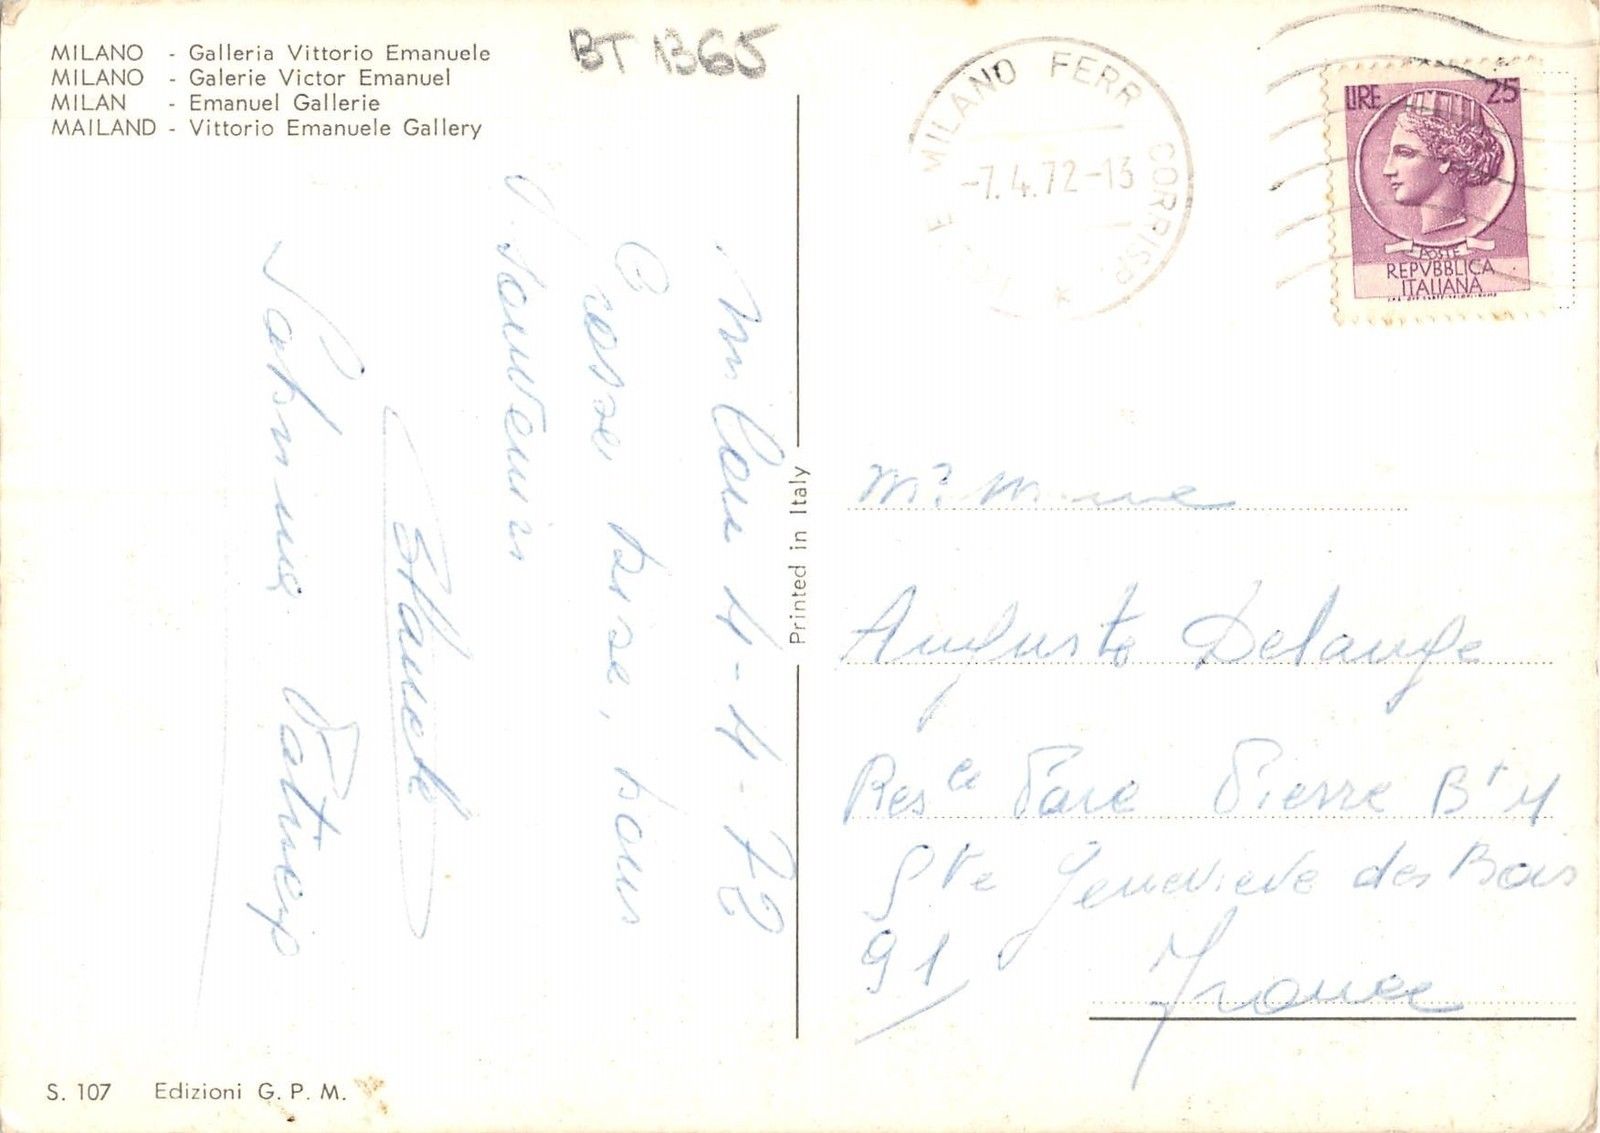 MILANO - Galleria Vittorio Emanuele
MILANO - Galerie Victor Emanuel
MILAN - Emanuel Gallerie
MAILAND - Vittorio Emanuele Gallery
BT 1365
MILANO FERR CORRISP. *
-7.4.72-13
LIRE 25
POSTE
REPVBBLICA
ITALIANA
Milan 4-4-72
Grosse bise, bons
Souvenirs
Printed in Italy
Mr Mme
Auguste Delange
Resce Parc Pierre Bt 4
Ste Genevieve des Bois
91
France
S. 107 Edizioni G. P. M.